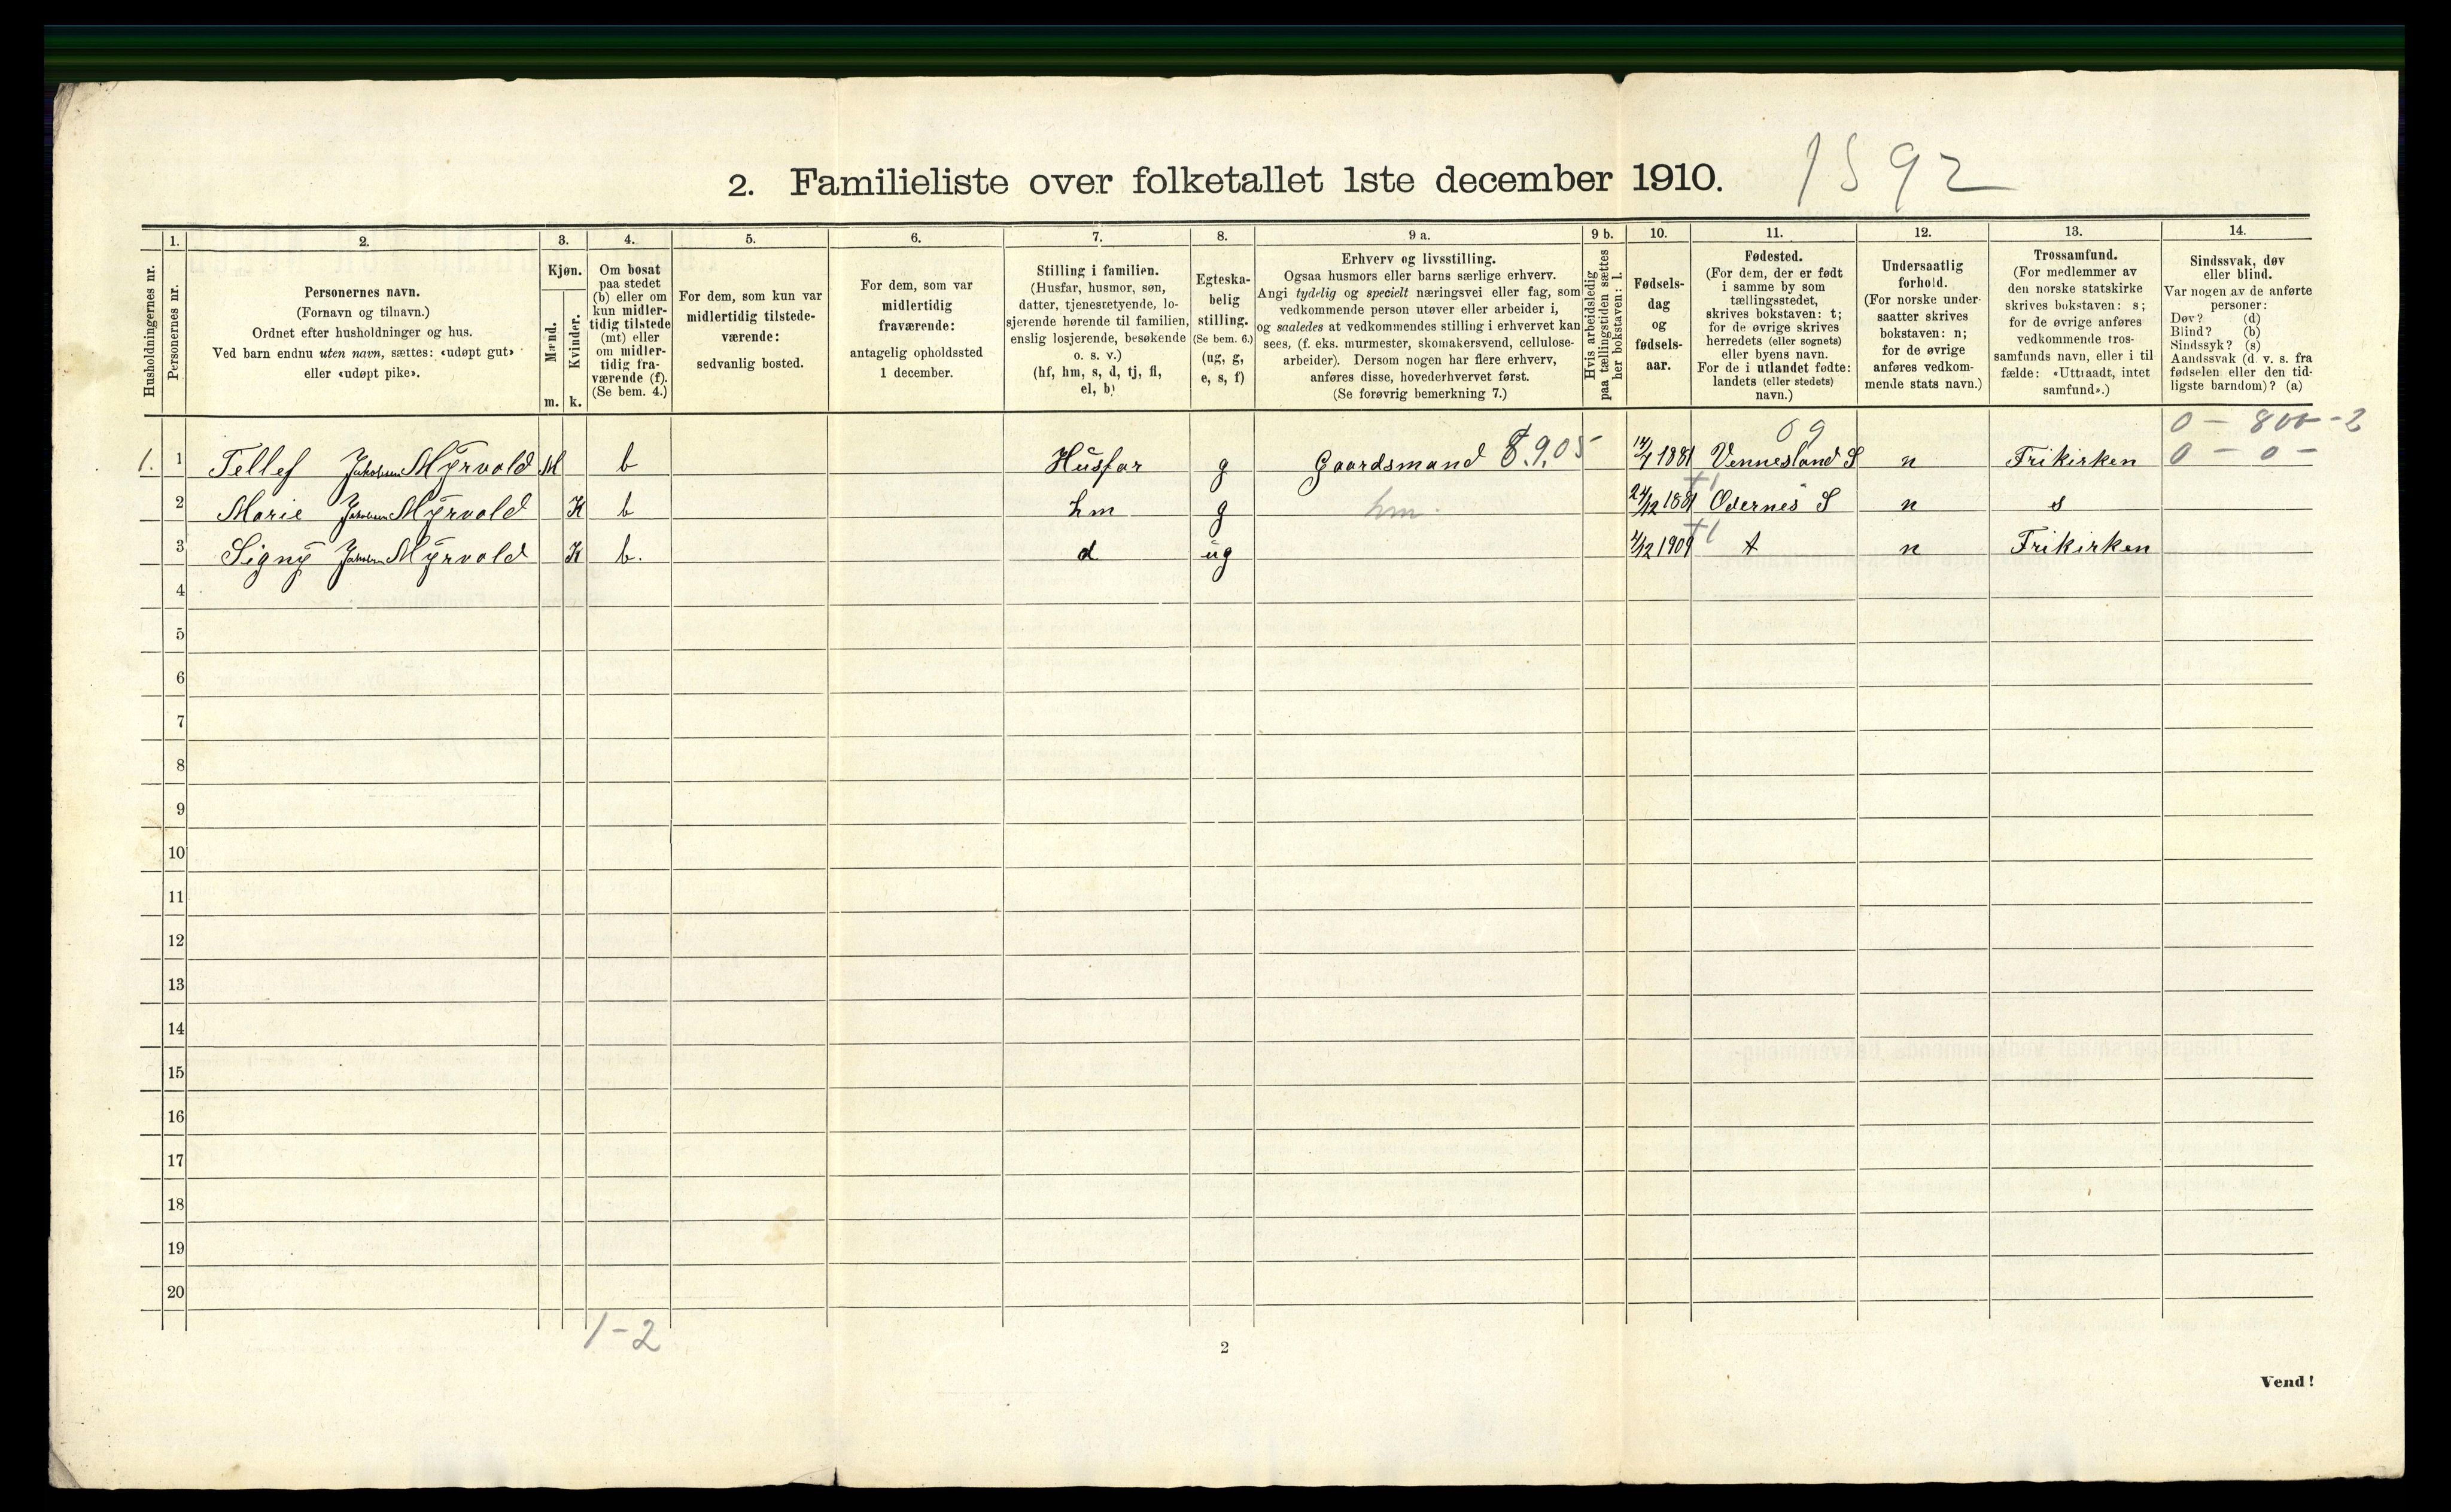 2. Familieliste over folketallet 1ste december 1910. 1592
1. 2. 3. 4. 5. 6. 7. 8. 9 a. 9 b. 10. 11. 12. 13. 14.
Husholdningernes nr.
Personernes nr.
Personernes navn.
(Fornavn og tilnavn.)
Ordnet efter husholdninger og hus.
Ved barn endnu uten navn, sættes: «udøpt gut»
eller «udøpt pike».
Kjøn.
Mænd.
Kvinder.
m. k.
Om bosat
paa stedet
(b) eller om
kun midler-
tidig tilstede
(mt) eller
om midler-
tidig fra-
værende (f).
(Se bem. 4.)
For dem, som kun var
midlertidig tilstede-
værende:
sedvanlig bosted.
For dem, som var
midlertidig
fraværende:
antagelig opholdssted
1 december.
Stilling i familien.
(Husfar, husmor, søn,
datter, tjenestetyende, lo-
sjerende hørende til familien,
enslig losjerende, besøkende
o. s. v.)
(hf, hm, s, d, tj, fl,
el, b)
Egteska-
belig
stilling.
(Se bem. 6.)
(ug, g,
e, s, f)
Erhverv og livsstilling.
Ogsaa husmors eller barns særlige erhverv.
Angi tydelig og specielt næringsvei eller fag, som
vedkommende person utøver eller arbeider i,
og saaledes at vedkommendes stilling i erhvervet kan
sees, (f. eks. murmester, skomakersvend, cellulose-
arbeider). Dersom nogen har flere erhverv,
anføres disse, hovederhvervet først.
(Se forøvrig bemerkning 7.)
Hvis arbeidsledig
paa tællingstiden sættes
her bokstaven: l.
Fødsels-
dag
og
fødsels-
aar.
Fødested.
(For dem, der er født
i samme by som
tællingsstedet,
skrives bokstaven: t;
for de øvrige skrives
herredets (eller sognets)
eller byens navn.
For de i utlandet fødte:
landets (eller stedets)
navn.)
Undersaatlig
forhold.
(For norske under-
saatter skrives
bokstaven: n;
for de øvrige
anføres vedkom-
mende stats navn.)
Trossamfund.
(For medlemmer av
den norske statskirke
skrives bokstaven: s;
for de øvrige anføres
vedkommende tros-
samfunds navn, eller i til
fælde: «Uttraadt, intet
samfund».)
Sindssvak, døv
eller blind.
Var nogen av de anførte
personer:
Døv? (d)
Blind? (b)
Sindssyk? (s)
Aandssvak (d. v. s. fra
fødselen eller den tid-
ligste barndom)? (a)
09 0 - 800 - 2
1. 1 Tellef Jakobsen Myrvold M b Husfar g Gaardsmand 8.9.05 14/7 1881 Vennesland S n Frikirken 0 - 0 -
2 Marie Jakobsen Myrvold K b hm g hm. 24/12 1881 Odernes S n s
3 Signy Jakobsen Myrvold K b. d ug 4/12 1909 t n Frikirken
4
5
6
7
8
9
10
11
12
13
14
15
16
17
18
19
20
1-2
2
Vend!